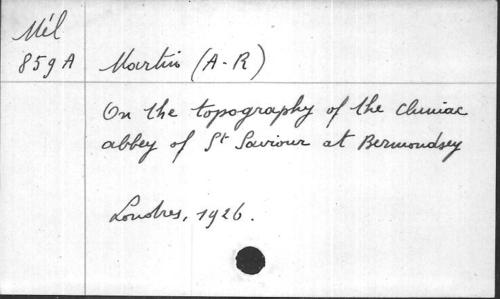 Mél
859 A Martin (A-R)
On the topography of the cluniac
abbey of St Saviour at Bermondsey
Londres, 1926.